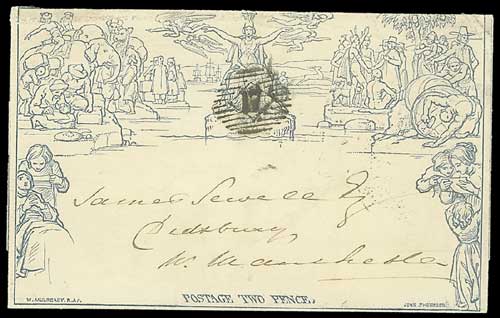 17
James Sewell Esq
Didsbury,
Nr. Manchester
W. MULREADY. R.A.
POSTAGE TWO PENCE.
JOHN THOMPSON